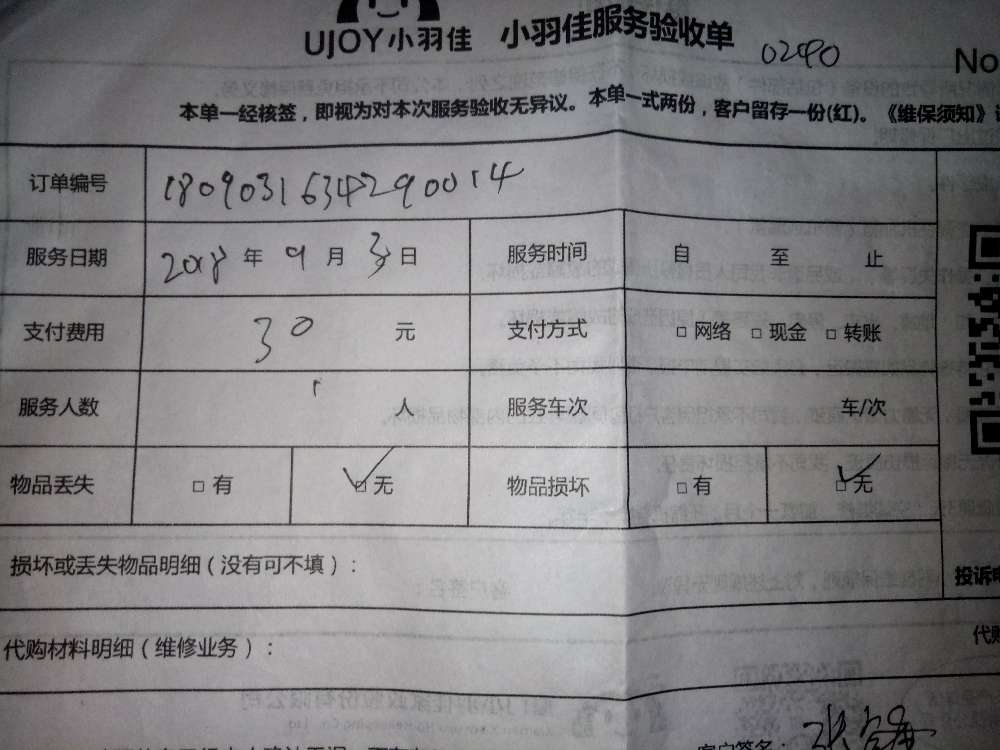 UJOY小羽佳 小羽佳服务验收单 0290 No
本单一经核签，即视为对本次服务验收无异议。本单一式两份，客户留存一份(红)。《维保须知》
订单编号 18090316342900014
服务日期 2018 年 9 月 3 日 服务时间 自 至 止
支付费用 30 元 支付方式 □网络 □现金 □转账
服务人数 1 人 服务车次 车/次
物品丢失 □有 □无 物品损坏 □有 □无
损坏或丢失物品明细（没有可不填）：
投诉电
代购材料明细（维修业务）：
代购
客户签名：